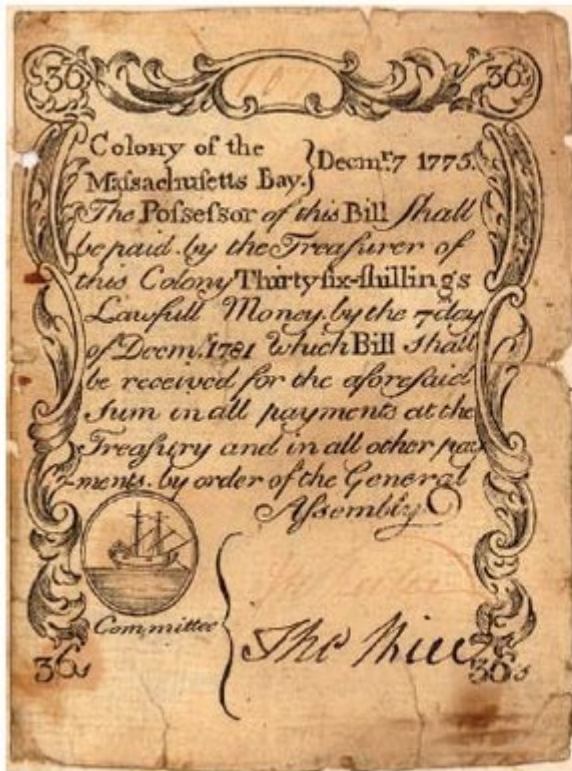 36 36
Colony of the
Maſsachusetts Bay. } Decmr. 7 1775.
The Poſseſsor of this Bill ſhall
be paid by the Treaſurer of
this Colony Thirty ſix-ſhillings
Lawfull Money. by the 7 day
of Decmr. 1781 Which Bill ſhall
be received for the aforeſaid
ſum in all payments at the
Treaſury and in all other pay
-ments. by order of the General
Aſsembly.
Committee
Tho Rice
36s 36s